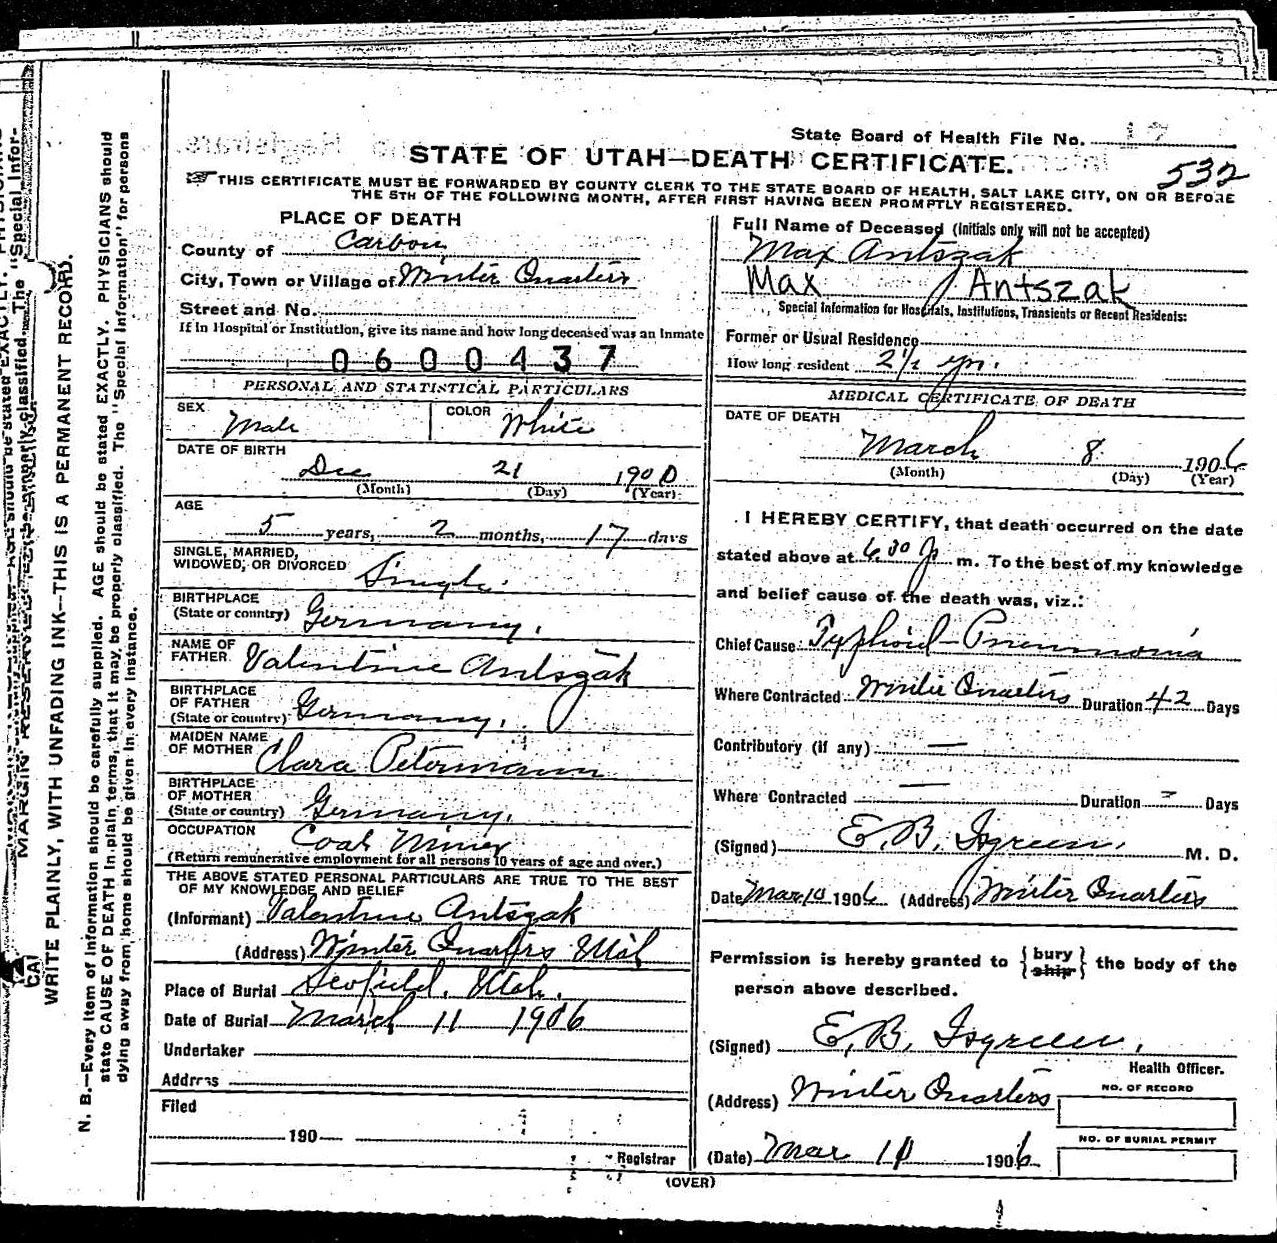 State Board of Health File No. 17
STATE OF UTAH—DEATH CERTIFICATE.
532
THIS CERTIFICATE MUST BE FORWARDED BY COUNTY CLERK TO THE STATE BOARD OF HEALTH, SALT LAKE CITY, ON OR BEFORE
THE 5TH OF THE FOLLOWING MONTH, AFTER FIRST HAVING BEEN PROMPTLY REGISTERED.
PLACE OF DEATH
County of Carbon
City, Town or Village of Winter Quarters
Street and No.
If in Hospital or Institution, give its name and how long deceased was an Inmate
0600437
PERSONAL AND STATISTICAL PARTICULARS
SEX Male COLOR White
DATE OF BIRTH
Dec 21 1900
(Month) (Day) (Year)
AGE
5 years, 2 months, 17 days
SINGLE, MARRIED,
WIDOWED, OR DIVORCED Single.
BIRTHPLACE
(State or country) Germany.
NAME OF
FATHER Valentine Antszak
BIRTHPLACE
OF FATHER
(State or country) Germany.
MAIDEN NAME
OF MOTHER Clara Petermann
BIRTHPLACE
OF MOTHER
(State or country) Germany.
OCCUPATION Coal Miner
(Return remunerative employment for all persons 10 years of age and over.)
THE ABOVE STATED PERSONAL PARTICULARS ARE TRUE TO THE BEST
OF MY KNOWLEDGE AND BELIEF
(Informant) Valentine Antszak
(Address) Winter Quarters Utah
Place of Burial Scofield, Utah.
Date of Burial March 11 1906
Undertaker
Address
Filed
190
Registrar
Full Name of Deceased (Initials only will not be accepted)
Max Antszak
Max Antszak
Special Information for Hospitals, Institutions, Transients or Recent Residents:
Former or Usual Residence
How long resident 2½ yrs.
MEDICAL CERTIFICATE OF DEATH
DATE OF DEATH
March 8 1906
(Month) (Day) (Year)
I HEREBY CERTIFY, that death occurred on the date
stated above at 6 30 P m. To the best of my knowledge
and belief cause of the death was, viz.:
Chief Cause Typhoid Pneumonia
Where Contracted Winter Quarters Duration 42 Days
Contributory (if any) —
Where Contracted — Duration - Days
(Signed) E. B. Isgreen. M. D.
Date Mar 10 1906 (Address) Winter Quarters
Permission is hereby granted to {bury ship} the body of the
person above described.
(Signed) E. B. Isgreen.
Health Officer.
(Address) Winter Quarters
NO. OF RECORD
NO. OF BURIAL PERMIT
(Date) Mar 10 1906
(OVER)
MARGIN RESERVED FOR BINDING
WRITE PLAINLY, WITH UNFADING INK—THIS IS A PERMANENT RECORD.
N. B.—Every item of information should be carefully supplied. AGE should be stated EXACTLY. PHYSICIANS should
state CAUSE OF DEATH in plain terms, that it may be properly classified. The "Special Information" for persons
dying away from home should be given in every instance.